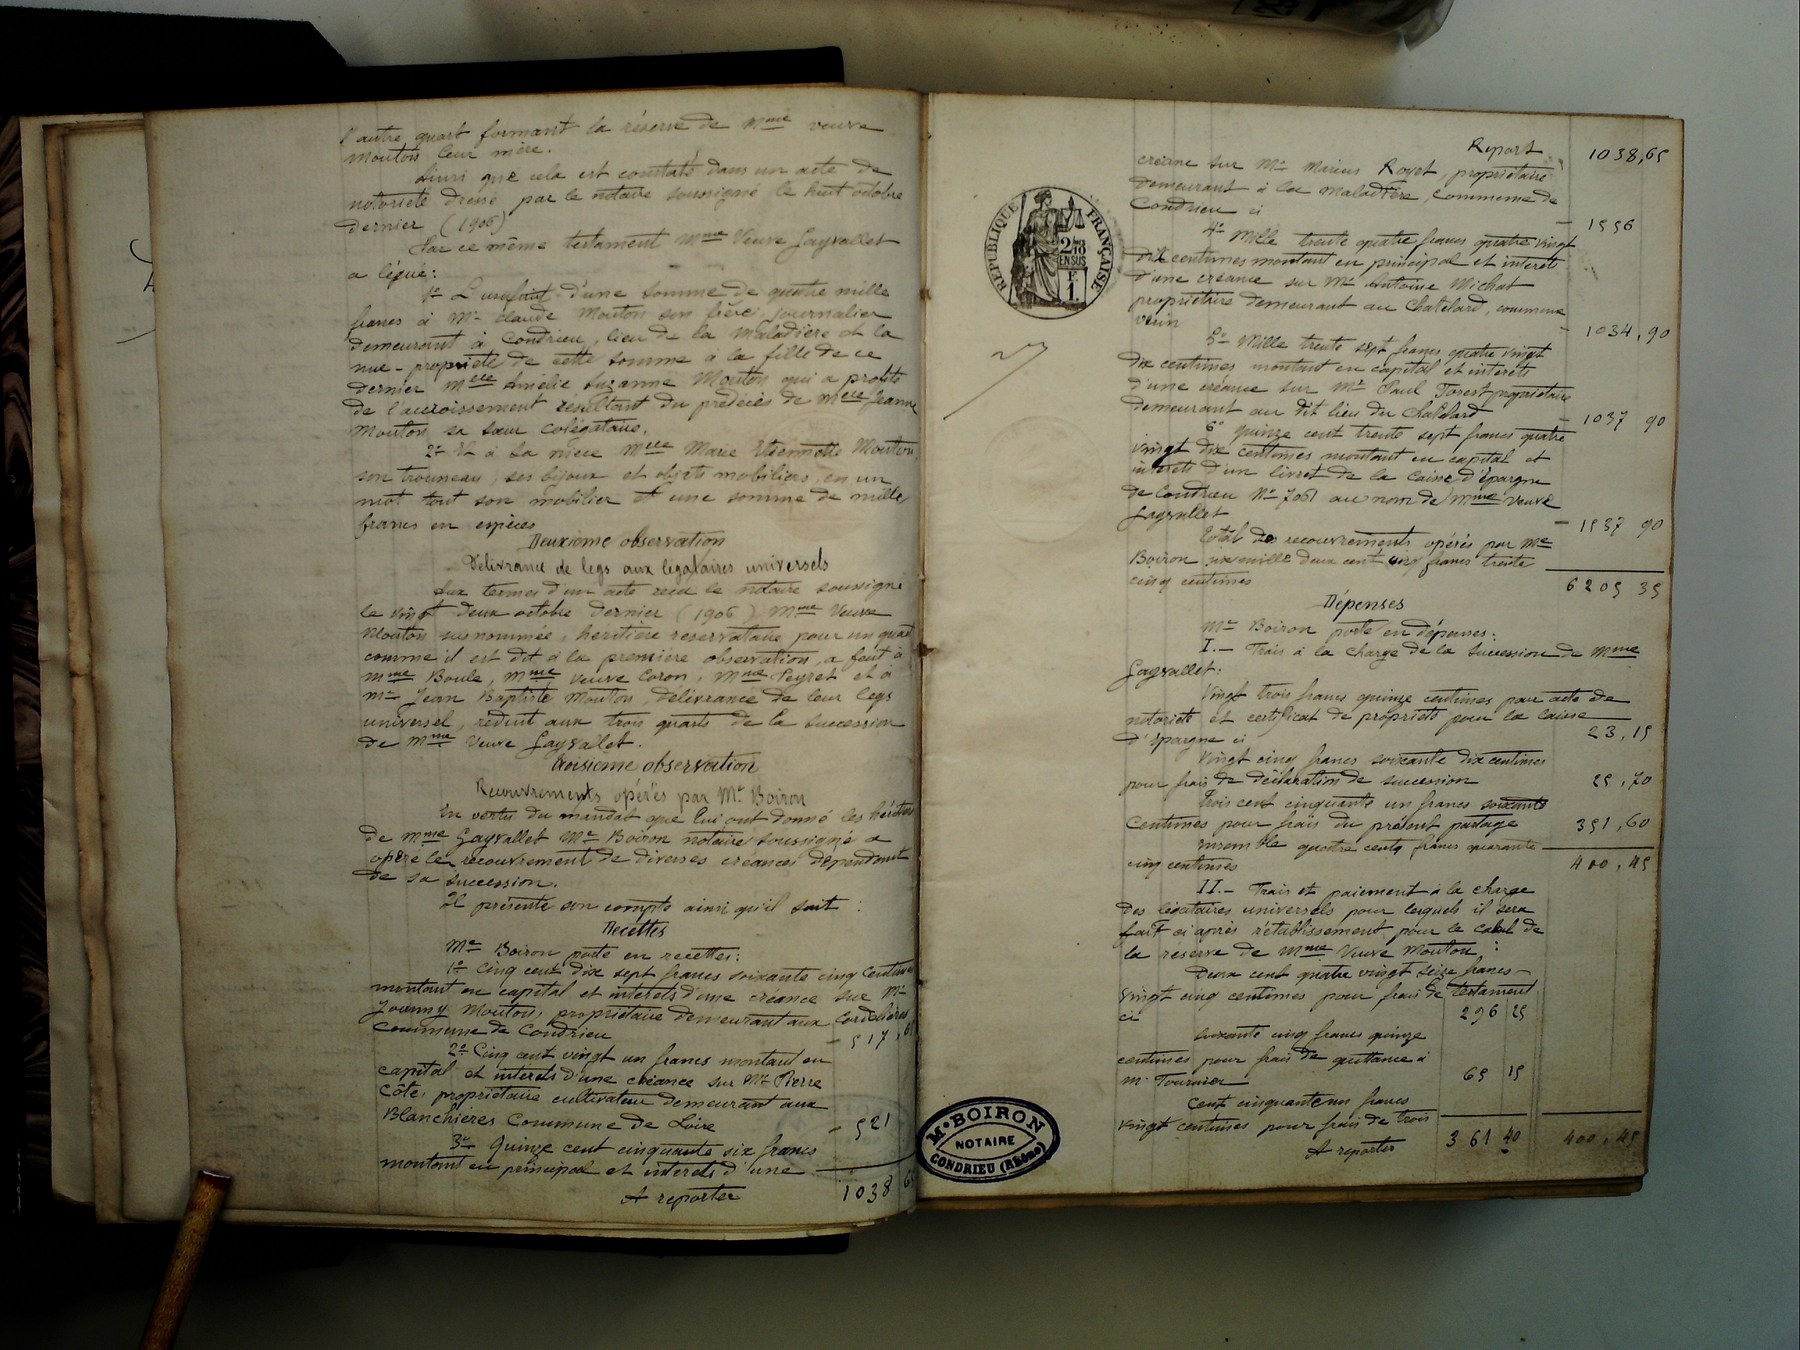 l'autre quart formant la réserve de Mme veuve
Mouton leur mère.
Ainsi que cela est constaté dans un acte de
notoriété dressé par le notaire soussigné le huit octobre
dernier (1906)
Par ce même testament Mme Veuve Gayvallet
a légué:
1o L'usufruit d'une somme de quatre mille
francs à Mr Claude Mouton son frère, journalier
demeurant à Condrieu, lieu de la Maladière et la
nue-propriété de cette somme à la fille de ce
dernier Melle Amélie Suzanne Mouton qui a profité
de l'accroissement résultant du prédécès de Melle Jeanne
Mouton sa sœur colégataire.
2o Et à sa nièce Melle Marie Etiennette Mouton,
son trousseau, ses bijoux et objets mobiliers, en un
mot tout son mobilier et une somme de mille
francs en espèces
Deuxième observation
Délivrance de legs aux légataires universels
Aux termes d'un acte reçu le notaire soussigné
le vingt deux octobre dernier (1906) Mme Veuve
Mouton susnommée, héritière réservataire pour un quart
comme il est dit à la première observation, a fait à
Mme Boule, Mme Veuve Coron, Mme Peyret et à
Mr Jean Baptiste Mouton, délivrance de leur legs
universel, réduit aux trois quarts de la succession
de Mme Veuve Gayvallet.
Troisième observation
Recouvrements opérés par Me Boiron
En vertu du mandat que lui ont donné les héritiers
de Mme Gayvallet Me Boiron notaire soussigné a
opéré le recouvrement de diverses créances dépendant
de sa succession.
Il présente son compte ainsi qu'il suit :
Recettes
Me Boiron porte en recettes:
1o Cinq cent dix sept francs soixante cinq centimes
montant en capital et intérêts d'une créance sur Mr
Joanny Mouton, propriétaire demeurant aux Cordelières
Commune de Condrieu – 517,65
2o Cinq cent vingt un francs montant en
capital et intérêts d'une créance sur Mr Pierre
Côte, propriétaire cultivateur demeurant aux
Blanchières Commune de Loire – 521
3o Quinze cent cinquante six francs
montant en principal et intérêts d'une
A reporter 1038 65
Report 1038,65
créance sur Mr Marius Royet, propriétaire
demeurant à la Maladière, commune de
Condrieu ci – 1556
4o Mille trente quatre francs quatre vingt
dix centimes montant en principal et intérêts
d'une créance sur Mr Antoine Michat
propriétaire demeurant au Chatelard, commune
Vérin – 1034,90
5o Mille trente sept francs quatre vingt
dix centimes montant en capital et intérêts
d'une créance sur Mr Paul Forest propriétaire
demeurant au dit lieu du Chatelard – 1037 90
6o quinze cent trente sept francs quatre
vingt dix centimes montant en capital et
intérêts d'un livret de la Caisse d'épargne
de Condrieu No 7061 au nom de Mme Veuve
Gayvallet – 1537 90
Total des recouvrements opérés par Me
Boiron six mille deux cent cinq francs trente
cinq centimes 6205 35
Dépenses
Me Boiron porte en dépenses:
I.– Frais à la charge de la succession de Mme
Gayvallet:
Vingt trois francs quinze centimes pour acte de
notoriété et certificat de propriété pour la Caisse
d'épargne ci 23,15
Vingt cinq francs soixante dix centimes
pour frais de déclaration de succession 25,70
Trois cent cinquante un francs soixante
centimes pour frais du présent partage 351,60
Ensemble quatre cents francs quarante
cinq centimes 400,45
II.– Frais et paiement à la charge
des légataires universels pour lesquels il sera
fait ci après rétablissement pour le calcul de
la réserve de Mme Veuve Mouton :
Deux cent quatre vingt seize francs
vingt cinq centimes pour frais de testament
ci 296 25
Soixante cinq francs quinze
centimes pour frais de quittance à
Mr Tournier 65 15
Cent cinquante francs
vingt centimes pour frais de trois
A reporter 361 40 400,45
RÉPUBLIQUE FRANÇAISE
2/10
EN SUS
1F.
Me BOIRON
NOTAIRE
CONDRIEU (Rhône)